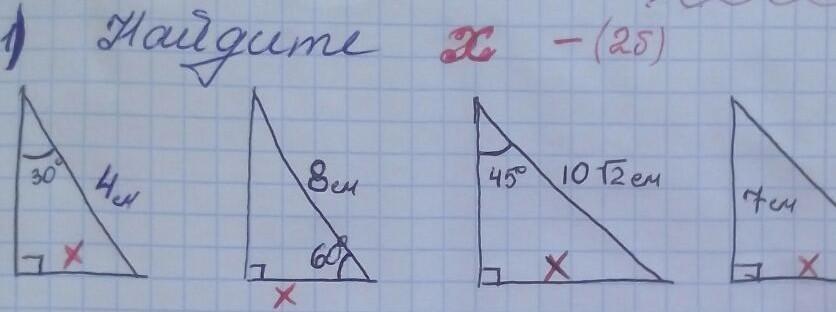 1) Найдите x - (2б)
30° 4 см x
8 см 60° x
45° 10√2 см x
7 см x